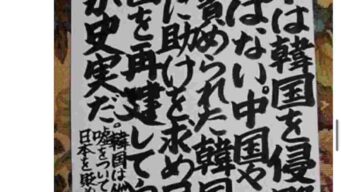 は韓国を侵
はない。中国や
責められた韓国
に助けを求め
国を再建して
が史実だ。
韓国は
嘘をついて
日本を